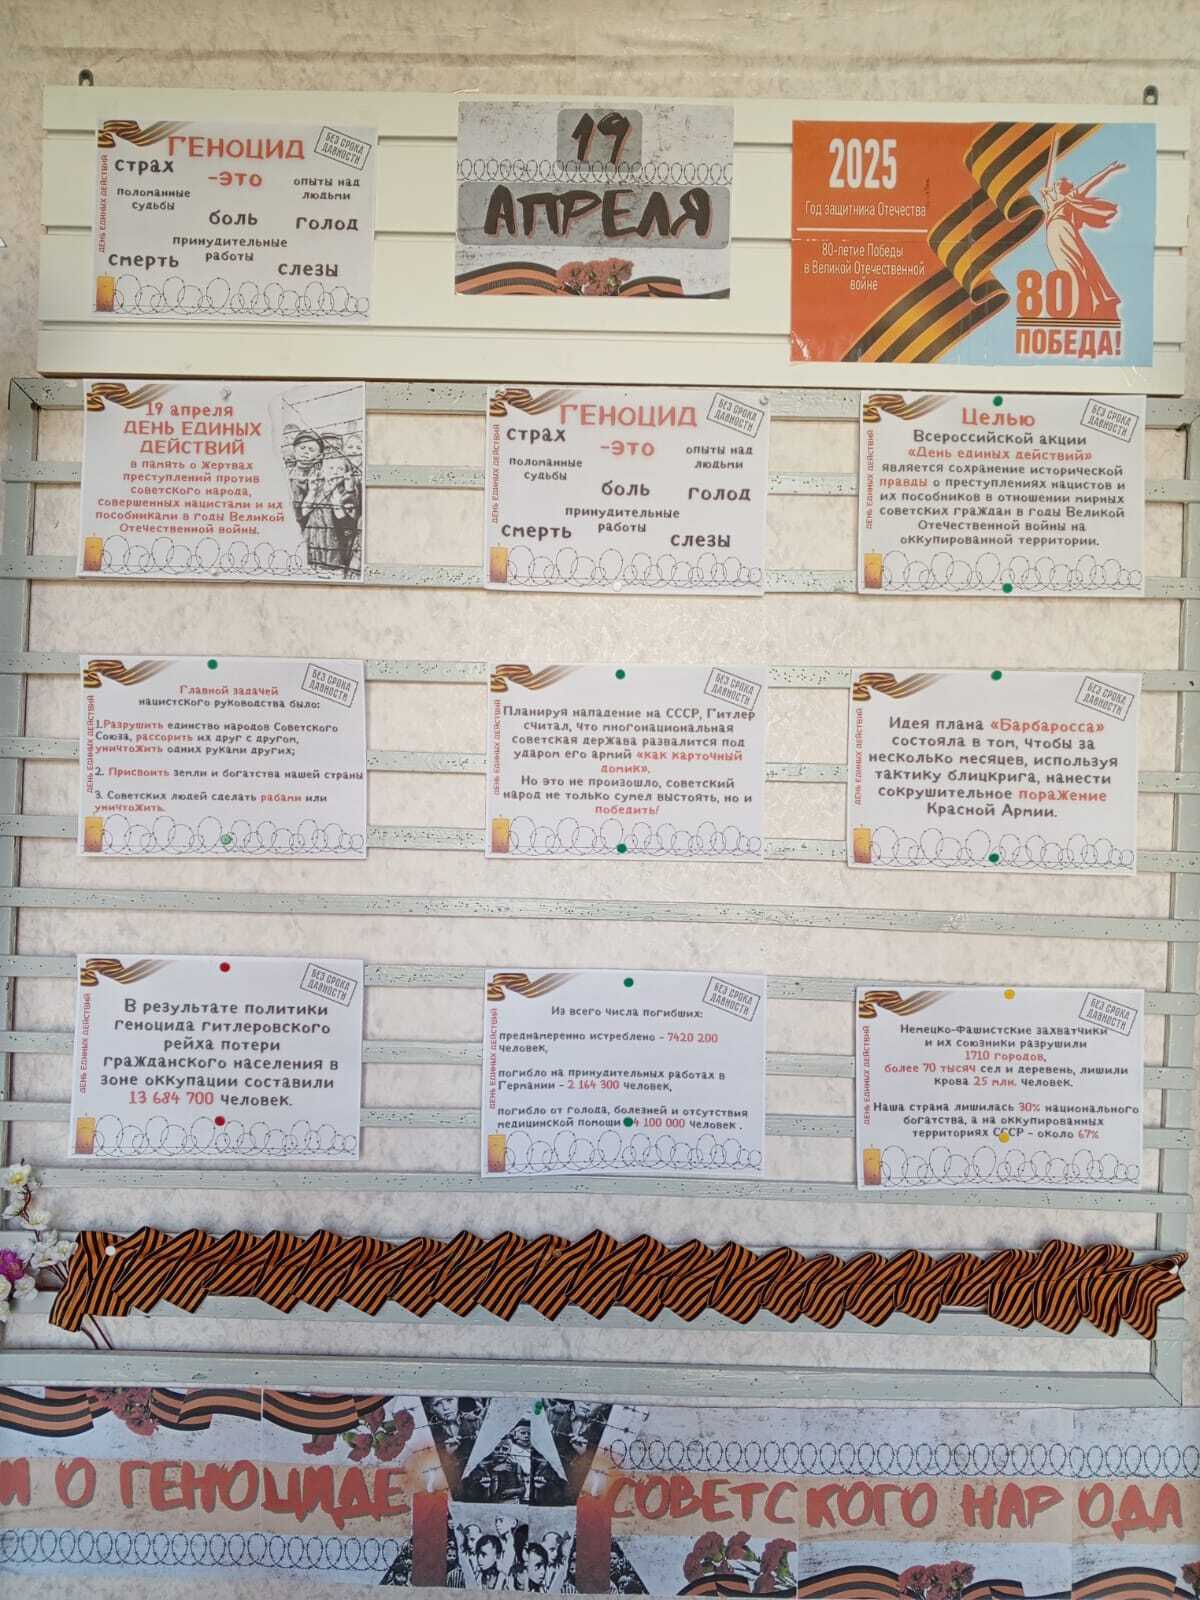 ДЕНЬ ЕДИНЫХ ДЕЙСТВИЙ
БЕЗ СРОКА
ДАВНОСТИ
ГЕНОЦИД
-ЭТО
страх
поломанные
судьбы
опыты над
людьми
боль
голод
принудительные
работы
смерть
слезы
19
АПРЕЛЯ
2025
Год защитника Отечества
80-летие Победы
в Великой Отечественной
войне
80
ПОБЕДА!
19 апреля
ДЕНЬ ЕДИНЫХ
ДЕЙСТВИЙ
в память о жертвах
преступлений против
советского народа,
совершенных нацистами и их
пособниками в годы Великой
Отечественной войны.
ДЕНЬ ЕДИНЫХ ДЕЙСТВИЙ
БЕЗ СРОКА
ДАВНОСТИ
ГЕНОЦИД
-ЭТО
страх
поломанные
судьбы
опыты над
людьми
боль
голод
принудительные
работы
смерть
слезы
ДЕНЬ ЕДИНЫХ ДЕЙСТВИЙ
БЕЗ СРОКА
ДАВНОСТИ
Целью
Всероссийской акции
«День единых действий»
является сохранение исторической
правды о преступлениях нацистов и
их пособников в отношении мирных
советских граждан в годы Великой
Отечественной войны на
оккупированной территории.
ДЕНЬ ЕДИНЫХ ДЕЙСТВИЙ
БЕЗ СРОКА
ДАВНОСТИ
Главной задачей
нацистского руководства было:
1.Разрушить единство народов Советского
Союза, рассорить их друг с другом,
уничтожить одних руками других;
2. Присвоить земли и богатства нашей страны
3. Советских людей сделать рабами или
уничтожить.
ДЕНЬ ЕДИНЫХ ДЕЙСТВИЙ
БЕЗ СРОКА
ДАВНОСТИ
Планируя нападение на СССР, Гитлер
считал, что многонациональная
советская держава развалится под
ударом его армий «как карточный
домик».
Но это не произошло, советский
народ не только сумел выстоять, но и
победить!
ДЕНЬ ЕДИНЫХ ДЕЙСТВИЙ
БЕЗ СРОКА
ДАВНОСТИ
Идея плана «Барбаросса»
состояла в том, чтобы за
несколько месяцев, используя
тактику блицкрига, нанести
сокрушительное поражение
Красной Армии.
ДЕНЬ ЕДИНЫХ ДЕЙСТВИЙ
БЕЗ СРОКА
ДАВНОСТИ
В результате политики
геноцида гитлеровского
рейха потери
гражданского населения в
зоне оккупации составили
13 684 700 человек.
ДЕНЬ ЕДИНЫХ ДЕЙСТВИЙ
БЕЗ СРОКА
ДАВНОСТИ
Из всего числа погибших:
преднамеренно истреблено - 7420 200
человек,
погибло на принудительных работах в
Германии - 2 164 300 человек,
погибло от голода, болезней и отсутствия
медицинской помощи 4 100 000 человек .
ДЕНЬ ЕДИНЫХ ДЕЙСТВИЙ
БЕЗ СРОКА
ДАВНОСТИ
Немецко-Фашистские захватчики
и их союзники разрушили
1710 городов,
более 70 тысяч сел и деревень, лишили
крова 25 млн. человек.
Наша страна лишилась 30% национального
богатства, а на оккупированных
территориях СССР - около 67%
И О ГЕНОЦИДЕ СОВЕТСКОГО НАРОДА